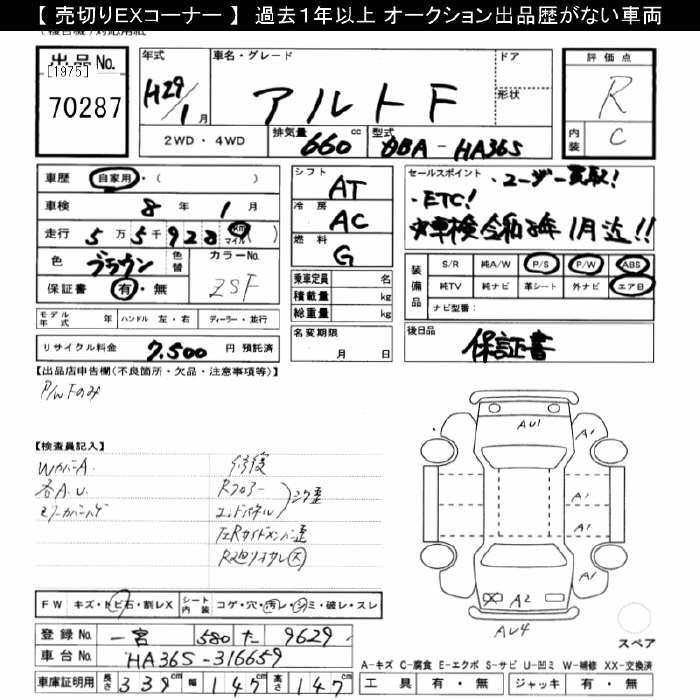 【 売切りEXコーナー 】 過去１年以上 オークション出品歴がない車両
出品No.
[1975]
70287
年式
H29/1月
車名・グレード
アルトF
ドア
形状
評価点
R
内装
C
2WD・4WD
排気量
660 cc
型式
DBA-HA36S
車歴 自家用・( )
車検 8年 1月
走行 5万5千928 km マイル
色 ブラウン 色替
カラーNo.
ZSF
保証書 有・無
シフト
AT
冷房
AC
燃料
G
乗車定員 名
積載量 kg
総重量 kg
セールスポイント
・ユーザー買取!
・ETC!
車検令和8年1月迄!!
装備品
S/R 純A/W P/S P/W ABS
純TV 純ナビ 革シート 外ナビ エア日
ナビ型番:
モデル年式 年 ハンドル 左・右 ディーラー・並行
リサイクル料金 7,500 円 預託済
名変期限
月 日
後日品
保証書
【出品店申告欄(不良箇所・欠品・注意事項等)】
P/W Fのみ
【検査員記入】
WカバーA.
各A.U.
修復
Rフロアー
エンドパネル
R廻り
FW キズ・トビ石・割レX
シート内装 コゲ・穴・汚レ・シミ・破レ・スレ
AU1
A1
A1
A1
A1
A2
AU4
スペア
登録No. 一宮 580 た 9629
車台No. HA36S-316659
車庫証明用 長さ 339 cm 幅 147 cm 高さ 147 cm
A-キズ C-腐食 E-エクボ S-サビ U-凹ミ W-補修 XX-交換済
工具 有・無 ジャッキ 有・無